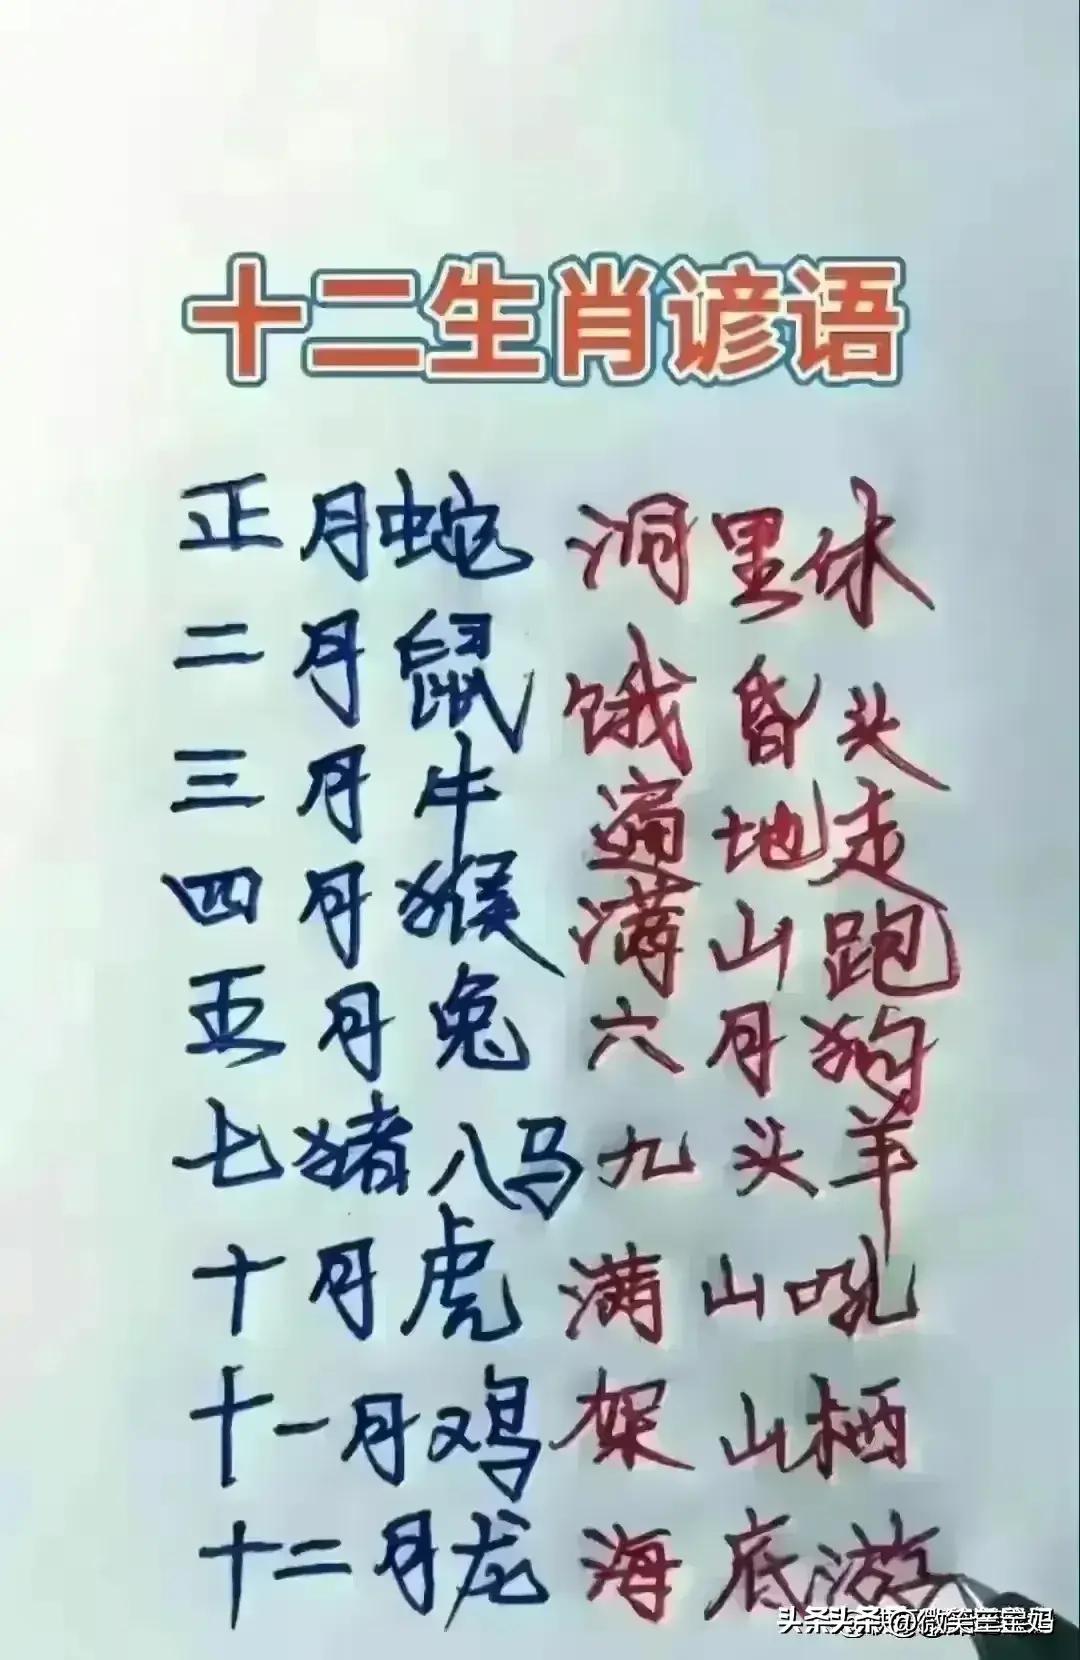 十二生肖谚语
正月蛇 洞里休
二月鼠 饿昏头
三月牛 遍地走
四月猴 满山跑
五月兔 六月狗
七猪八马 九头羊
十月虎 满山吼
十一月鸡 架山栖
十二月龙 海底游
头条 @微笑三宝妈